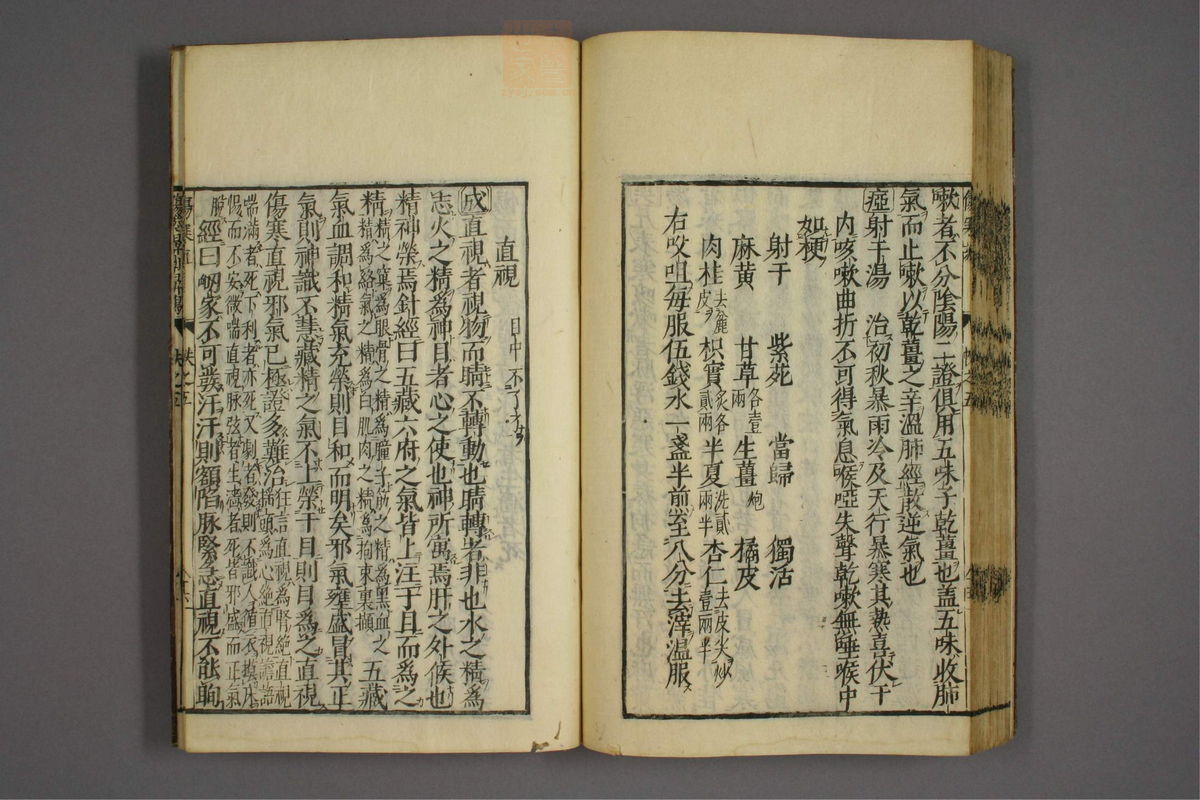 嗽者不分陰陽二證俱用五味子乾薑也蓋五味收肺
氣而止嗽以乾薑之辛溫肺經散逆氣也
瘂射干湯 治初秋暴雨冷及天行暴寒其熱喜伏于
內咳嗽曲折不可得氣息喉啞失聲乾嗽無唾喉中
如梗
射干 紫苑 當歸 獨活
麻黄 甘草各壹兩 生薑炮 橘皮
肉桂去麄皮 枳實炙各貳兩 半夏洗貳兩半 杏仁去皮尖炒壹兩半
右㕮咀每服伍錢水一盞半前至八分去滓溫服
直視 目中不了了
成直視者視物而睛不轉動也睛轉者非也水之精爲
志火之精爲神目者心之使也神所寓焉肝之外候也
精神榮焉針經曰五藏六府之氣皆上注于目而爲之
精精之窠爲眼骨之精爲瞳子筋之精爲黑血之精爲絡氣之精爲白肌肉之精爲拘束裏擷之五藏
氣血調和精氣充榮則目和而明矣邪氣壅盛冒其正
氣則神識不慧藏精之氣不上榮于目則目爲之直視
傷寒直視邪氣已極證多難治狂言直視爲腎絶直視搖頭爲心絶直視譫語
喘滿者死下利者亦死又劇者發則不識人循衣摸床
惕而不安微喘直視脉弦者生濇者死皆邪盛而正氣
脫 經曰衂家不可發汗汗則額陷脉緊急直視不能眴